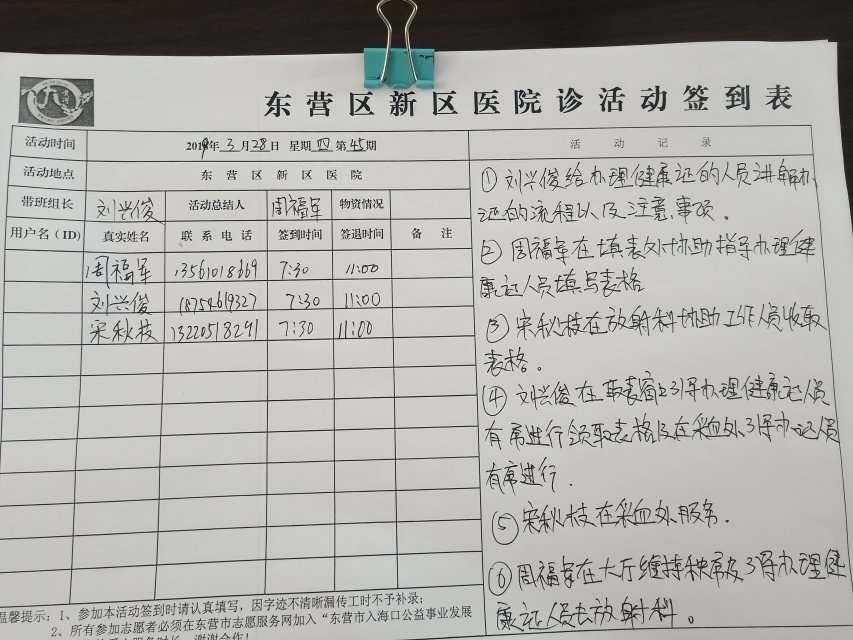 东营区新区医院诊活动签到表
活动时间 2019年3月28日 星期四 第45期 活动记录
活动地点 东营区新区医院
带班组长 刘兴俊 活动总结人 周福军 物资情况
用户名（ID） 真实姓名 联系电话 签到时间 签退时间 备注
周福军 13561018669 7:30 11:00
刘兴俊 18754619327 7:30 11:00
宋秋枝 13220518291 7:30 11:00
①刘兴俊给办理健康证的人员讲解办
证的流程以及注意事项。
②周福军在填表处协助指导办理健
康证人员填写表格
③宋秋枝在放射科协助工作人员收取
表格。
④刘兴俊在取表窗口引导办理健康证人员
有序进行领取表格及在采血处引导办证人员
有序进行.
⑤宋秋枝在采血处服务.
⑥周福军在大厅维持秩序及引导办理健
康证人员去放射科。
温馨提示：1、参加本活动签到时请认真填写，因字迹不清晰漏传工时不予补录；
2、所有参加志愿者必须在东营市志愿服务网加入“东营市入海口公益事业发展